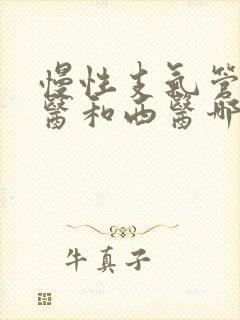 慢性支氣管
醫和西醫哪
牛真子